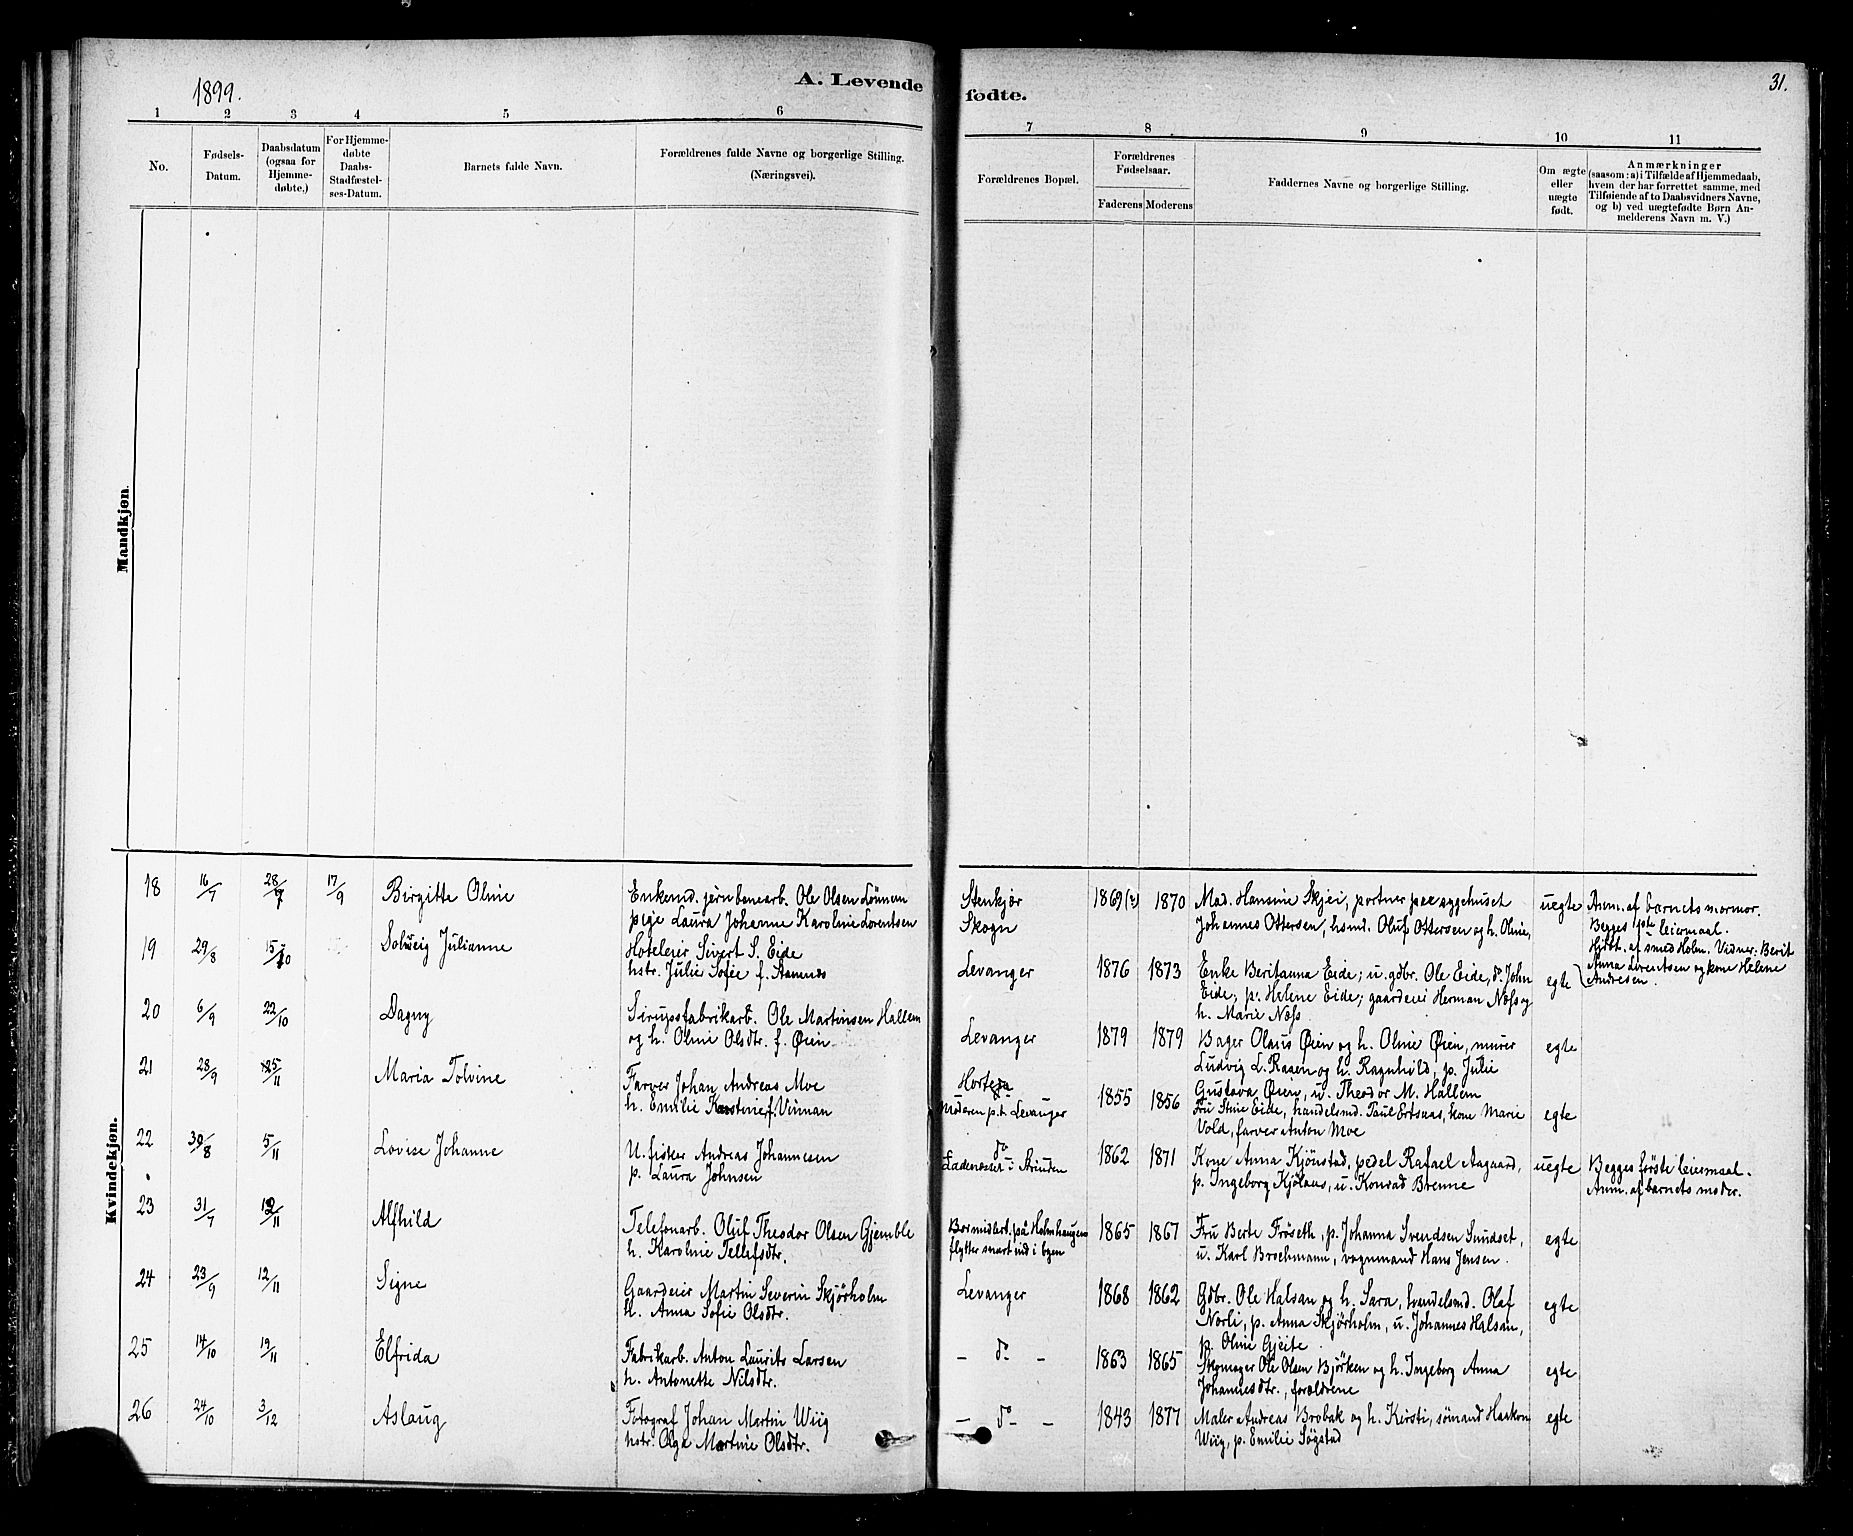 1899.
A. Levende fødte.
31.
1 2 3 4 5 6 7 8 9 10 11
No.
Fødsels-
Datum.
Daabsdatum
(ogsaa for
Hjemme-
døbte.)
For Hjemme-
døbte
Daabs-
Stadfæstel-
ses-Datum.
Barnets fulde Navn.
Forældrenes fulde Navne og borgerlige Stilling.
(Næringsvei).
Forældrenes Bopæl.
Forældrenes
Fødselsaar.
Faderens Moderens
Faddernes Navne og borgerlige Stilling.
Om ægte
eller
uægte
født.
Anmærkninger
(saasom: a) i Tilfælde af Hjemmedaab,
hvem der har forrettet samme, med
Tilføiende af to Daabsvidners Navne,
og b) ved uægtefødte Børn An-
melderens Navn m. V.)
Mandkjøn.
Kvindekjøn.
18 16/7 28/7 17/9 Birgitte Oline
Enkemd. jernbanearb. Ole Olsen Lønnem
pige Laura Johanne Karoline Lorentsen
Stenkjær
Skogn
1869(?) 1870
Mad. Hansine Skjei, portner paa sygehuset
Johannes Ottersen, hsmd. Oluf Ottersen og h. Oline,
uegte
Anm. af barnets mormor.
Begges 1ste leiermaal.
Hjdb. af smed Holm. Vidner: Berit
Anna Lorentsen og kone Helene
Andresen.
19 29/8 15/10 Solveig Julianne
Hoteleier Sivert S. Eide
hstr. Julie Sofie f. Stamnes
Levanger
1876 1873
Enke Beritanna Eide; u. gdbr. Ole Eide, do. John
Eide, p. Helene Eide; gaardeier Herman Næss og
h. Marie Næss
egte
20 6/9 22/10 Dagny
Sirupsfabrikarb. Ole Martinsen Hallem
og h. Oline Olsdtr. f. Øien
Levanger
1879 1879
Bager Olaus Øien og h. Oline Øien, murer
Ludvig L. Raaen og h. Ragnhild, p. Julie
Gustava Øien, u. Theodor M. Hallem
egte
21 28/9 5/11 Maria Tolvine
Farver Johan Andreas Moe
h. Emilie Karstine f. Vinnan
Horten
Moderen p.t. Levanger
1855 1856
Fru Stine Eide, handelsmd. Paul Ertsaas, kone Marie
Vold, farver Anton Moe
egte
22 30/8 5/11 Lovise Johanne
U. fisker Andreas Johannesen
p. Laura Johnsen
do
Ladeneset i Strinden
1862 1871
Kone Anna Kjønstad, pedel Rafael Aagaard,
p. Ingeborg Kjølaas, u. Konrad Brenne
uegte
Begges første leiermaal.
Anm. af barnets moder.
23 31/7 12/11 Alfhild
Telefonarb. Oluf Theodor Olsen Gjemble
h. Karoline Tellefsdtr.
Bor midlert. på Holmhaugen
flytter snart ind i byen
1865 1867
Fru Berte Frøseth, p. Johanna Svendsen Sundset,
u. Karl Brochmann, vognmand Hans Jensen.
egte
24 23/9 12/11 Signe
Gaardeier Martin Severin Skjørholm
h. Anna Sofie Olsdtr.
Levanger
1868 1862
Gdbr. Ole Halsan og h. Sara, handelsmd. Olaf
Norli, p. Anna Skjørholm, u. Johannes Halsan,
p. Oline Gjeite.
egte
25 14/10 19/11 Elfrida
Fabrikarb. Anton Laurits Larsen
h. Antonette Nilsdtr.
– do –
1863 1865
Skomager Ole Olsen Bjørken og h. Ingeborg Anna
Johannesdtr., forældrene
egte
26 24/10 3/12 Aslaug
Fotograf Johan Martin Wiig
hstr. Olga Martine Olsdtr.
– do –
1843 1877
Maler Andreas Brobak og h. Kirsti, sømand Haakon
Wiig, p. Emilie Søgstad
egte